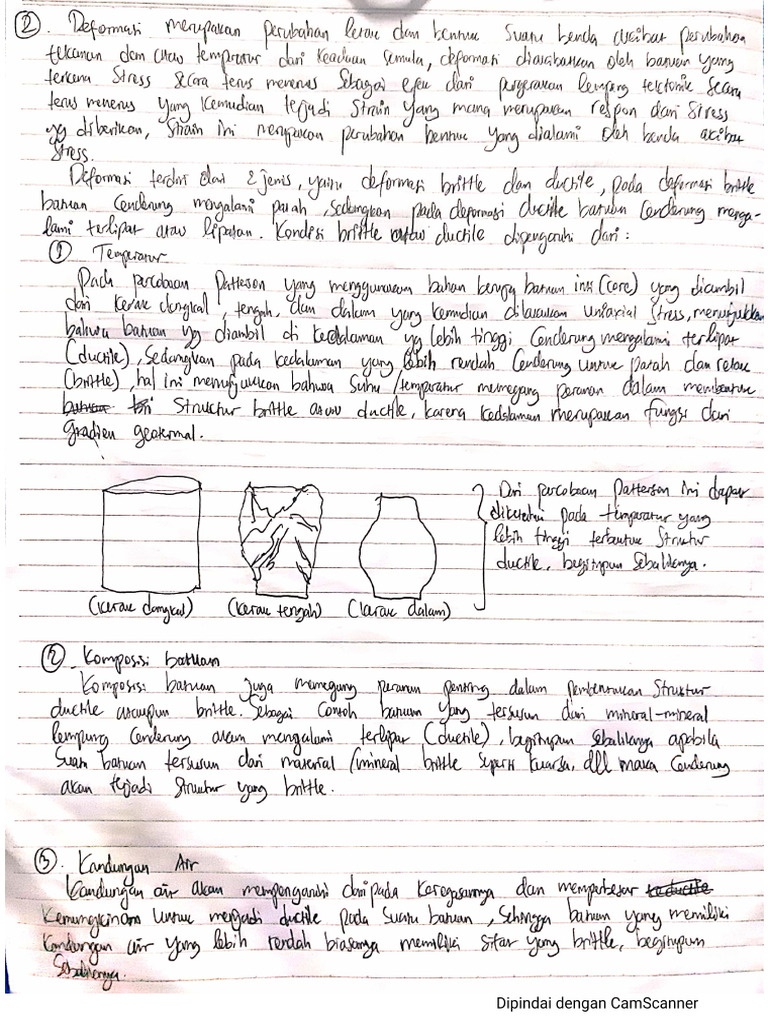 ② . Deformasi merupakan perubahan letak dan bentuk suatu benda akibat perubahan
tekanan dan atau temperatur dari keadaan semula, deformasi diakibatkan oleh batuan yang
terkena stress secara terus menerus sebagai efek dari pergerakan lempeng tektonik secara
terus menerus yang kemudian terjadi strain yang mana merupakan respon dari stress
yg diberikan, strain ini merupakan perubahan bentuk yang dialami oleh benda akibat
stress.
Deformasi terdiri dari 2 jenis, yaitu deformasi brittle dan ductile, pada deformasi brittle
batuan cenderung mengalami patah, sedangkan pada deformasi ductile batuan cenderung menga-
lami terlipat atau lipatan. Kondisi brittle atau ductile dipengaruhi dari :
① Temperatur
Pada percobaan Patterson yang menggunakan bahan berupa batuan inti (core) yang diambil
dari kerak dangkal, tengah, dan dalam yang kemudian dilakukan uniaxial stress, menunjukkan
bahwa batuan yg diambil di kedalaman yg lebih tinggi cenderung mengalami terlipat
(ductile), sedangkan pada kedalaman yang lebih rendah cenderung untuk patah dan retak
(brittle), hal ini menunjukkan bahwa suhu / temperatur memegang peranan dalam membentuk
struktur brittle atau ductile, karena kedalaman merupakan fungsi dari
gradien geotermal.
(kerak dangkal) (kerak tengah) (kerak dalam)
Dari percobaan Patterson ini dapat
diketahui pada temperatur yang
lebih tinggi terbentuk struktur
ductile, begitupun sebaliknya.
② . Komposisi batuan
Komposisi batuan juga memegang peranan penting dalam pembentukan struktur
ductile ataupun brittle. Sebagai contoh batuan yang tersusun dari mineral-mineral
lempung cenderung akan mengalami terlipat (ductile), begitupun sebaliknya apabila
suatu batuan tersusun dari material / mineral brittle seperti kuarsa, dll maka cenderung
akan terjadi struktur yang brittle.
③ . Kandungan Air
Kandungan air akan mempengaruhi daripada kekerasannya dan memperbesar
kemungkinan untuk menjadi ductile pada suatu batuan, sehingga batuan yang memiliki
kandungan air yang lebih rendah biasanya memiliki sifat yang brittle, begitupun
sebaliknya.
Dipindai dengan CamScanner